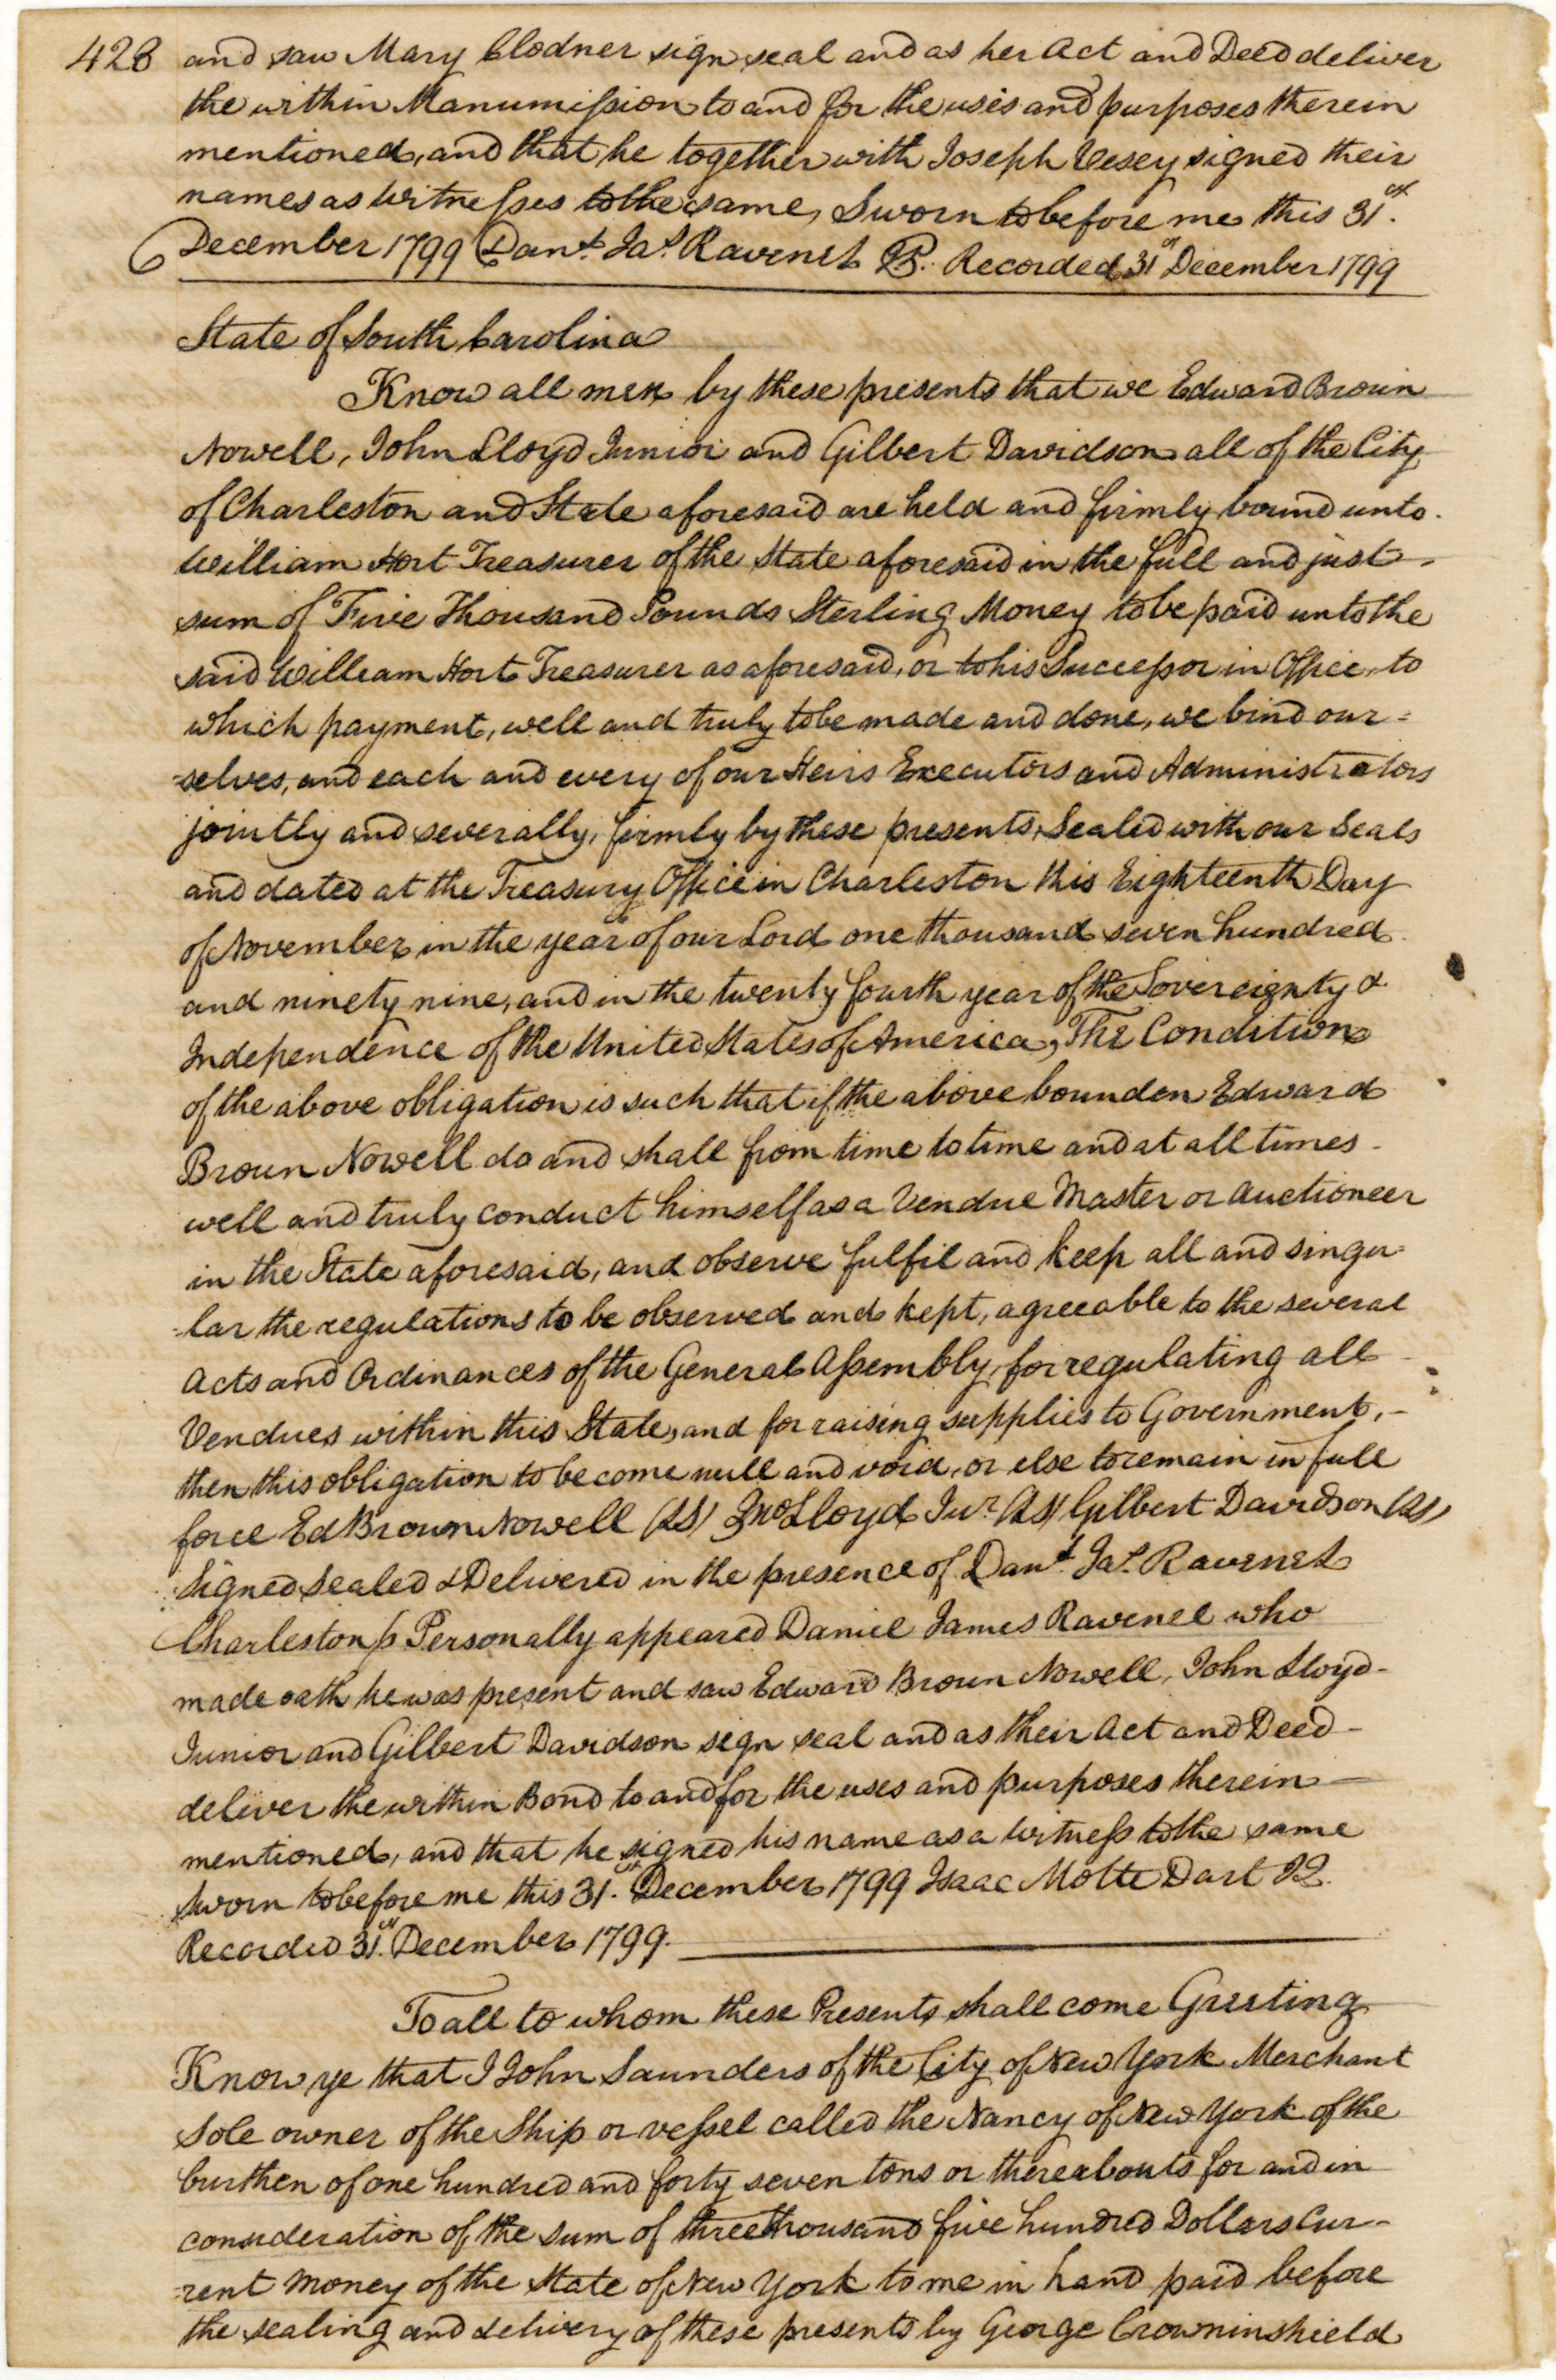 428 and saw Mary Clodner sign seal and as her Act and Deed deliver
the within Manumission to and for the uses and purposes therein
mentioned, and that he together with Joseph Vesey signed their
names as Witnesses to the same, Sworn to before me this 31st.
December 1799 Danl. Jas. Ravenel Recorded 31st December 1799
State of South Carolina
Know all men by these presents that we Edward Broun
Nowell, John Lloyd Junior and Gilbert Davidson all of the City
of Charleston and State aforesaid are held and firmly bound unto
William Hort Treasurer of the State aforesaid in the full and just
sum of Five Thousand Pounds Sterling Money to be paid unto the
said William Hort Treasurer as aforesaid, or to his Successor in Office, to
which payment, well and truly to be made and done, we bind our=
-selves, and each and every of our Heirs Executors and Administrators
jointly and severally, firmly by these presents, Sealed with our Seals
and dated at the Treasury Office in Charleston this Eighteenth Day
of November in the year of our Lord one thousand seven hundred
and ninety nine, and in the twenty fourth year of the Sovereignty &
Independence of the United States of America, The Condition
of the above obligation is such that if the above bounden Edward
Broun Nowell do and shall from time to time and at all times
well and truly conduct himself as a Vendue Master or Auctioneer
in the State aforesaid, and observe fulfil and keep all and singu-
-lar the regulations to be observed and kept, agreeable to the several
Acts and Ordinances of the General Assembly, for regulating all
Vendues within this State, and for raising supplies to Government,
then this obligation to become null and void, or else to remain in full
force Ed Broun Nowell (LS) Jno Lloyd Junr (LS) Gilbert Davidson (LS)
Signed Sealed & Delivered in the presence of Danl. Jas. Ravenel
Charleston ss Personally appeared Daniel James Ravenel who
made oath he was present and saw Edward Broun Nowell, John Lloyd
Junior and Gilbert Davidson sign seal and as their Act and Deed
deliver the within Bond to and for the uses and purposes therein
mentioned, and that he signed his name as a Witness to the same
Sworn to before me this 31st. December 1799 Isaac Motte Dart JQ.
Recorded 31st. December 1799.
To all to whom these Presents shall come Greeting
Know ye that I John Saunders of the City of New York Merchant
Sole owner of the Ship or vessel called the Nancy of New York of the
burthen of one hundred and forty seven tons or thereabouts for and in
consideration of the sum of three thousand five hundred Dollars Cur-
-rent money of the State of New York to me in hand paid before
the sealing and delivery of these presents by George Crowninshield